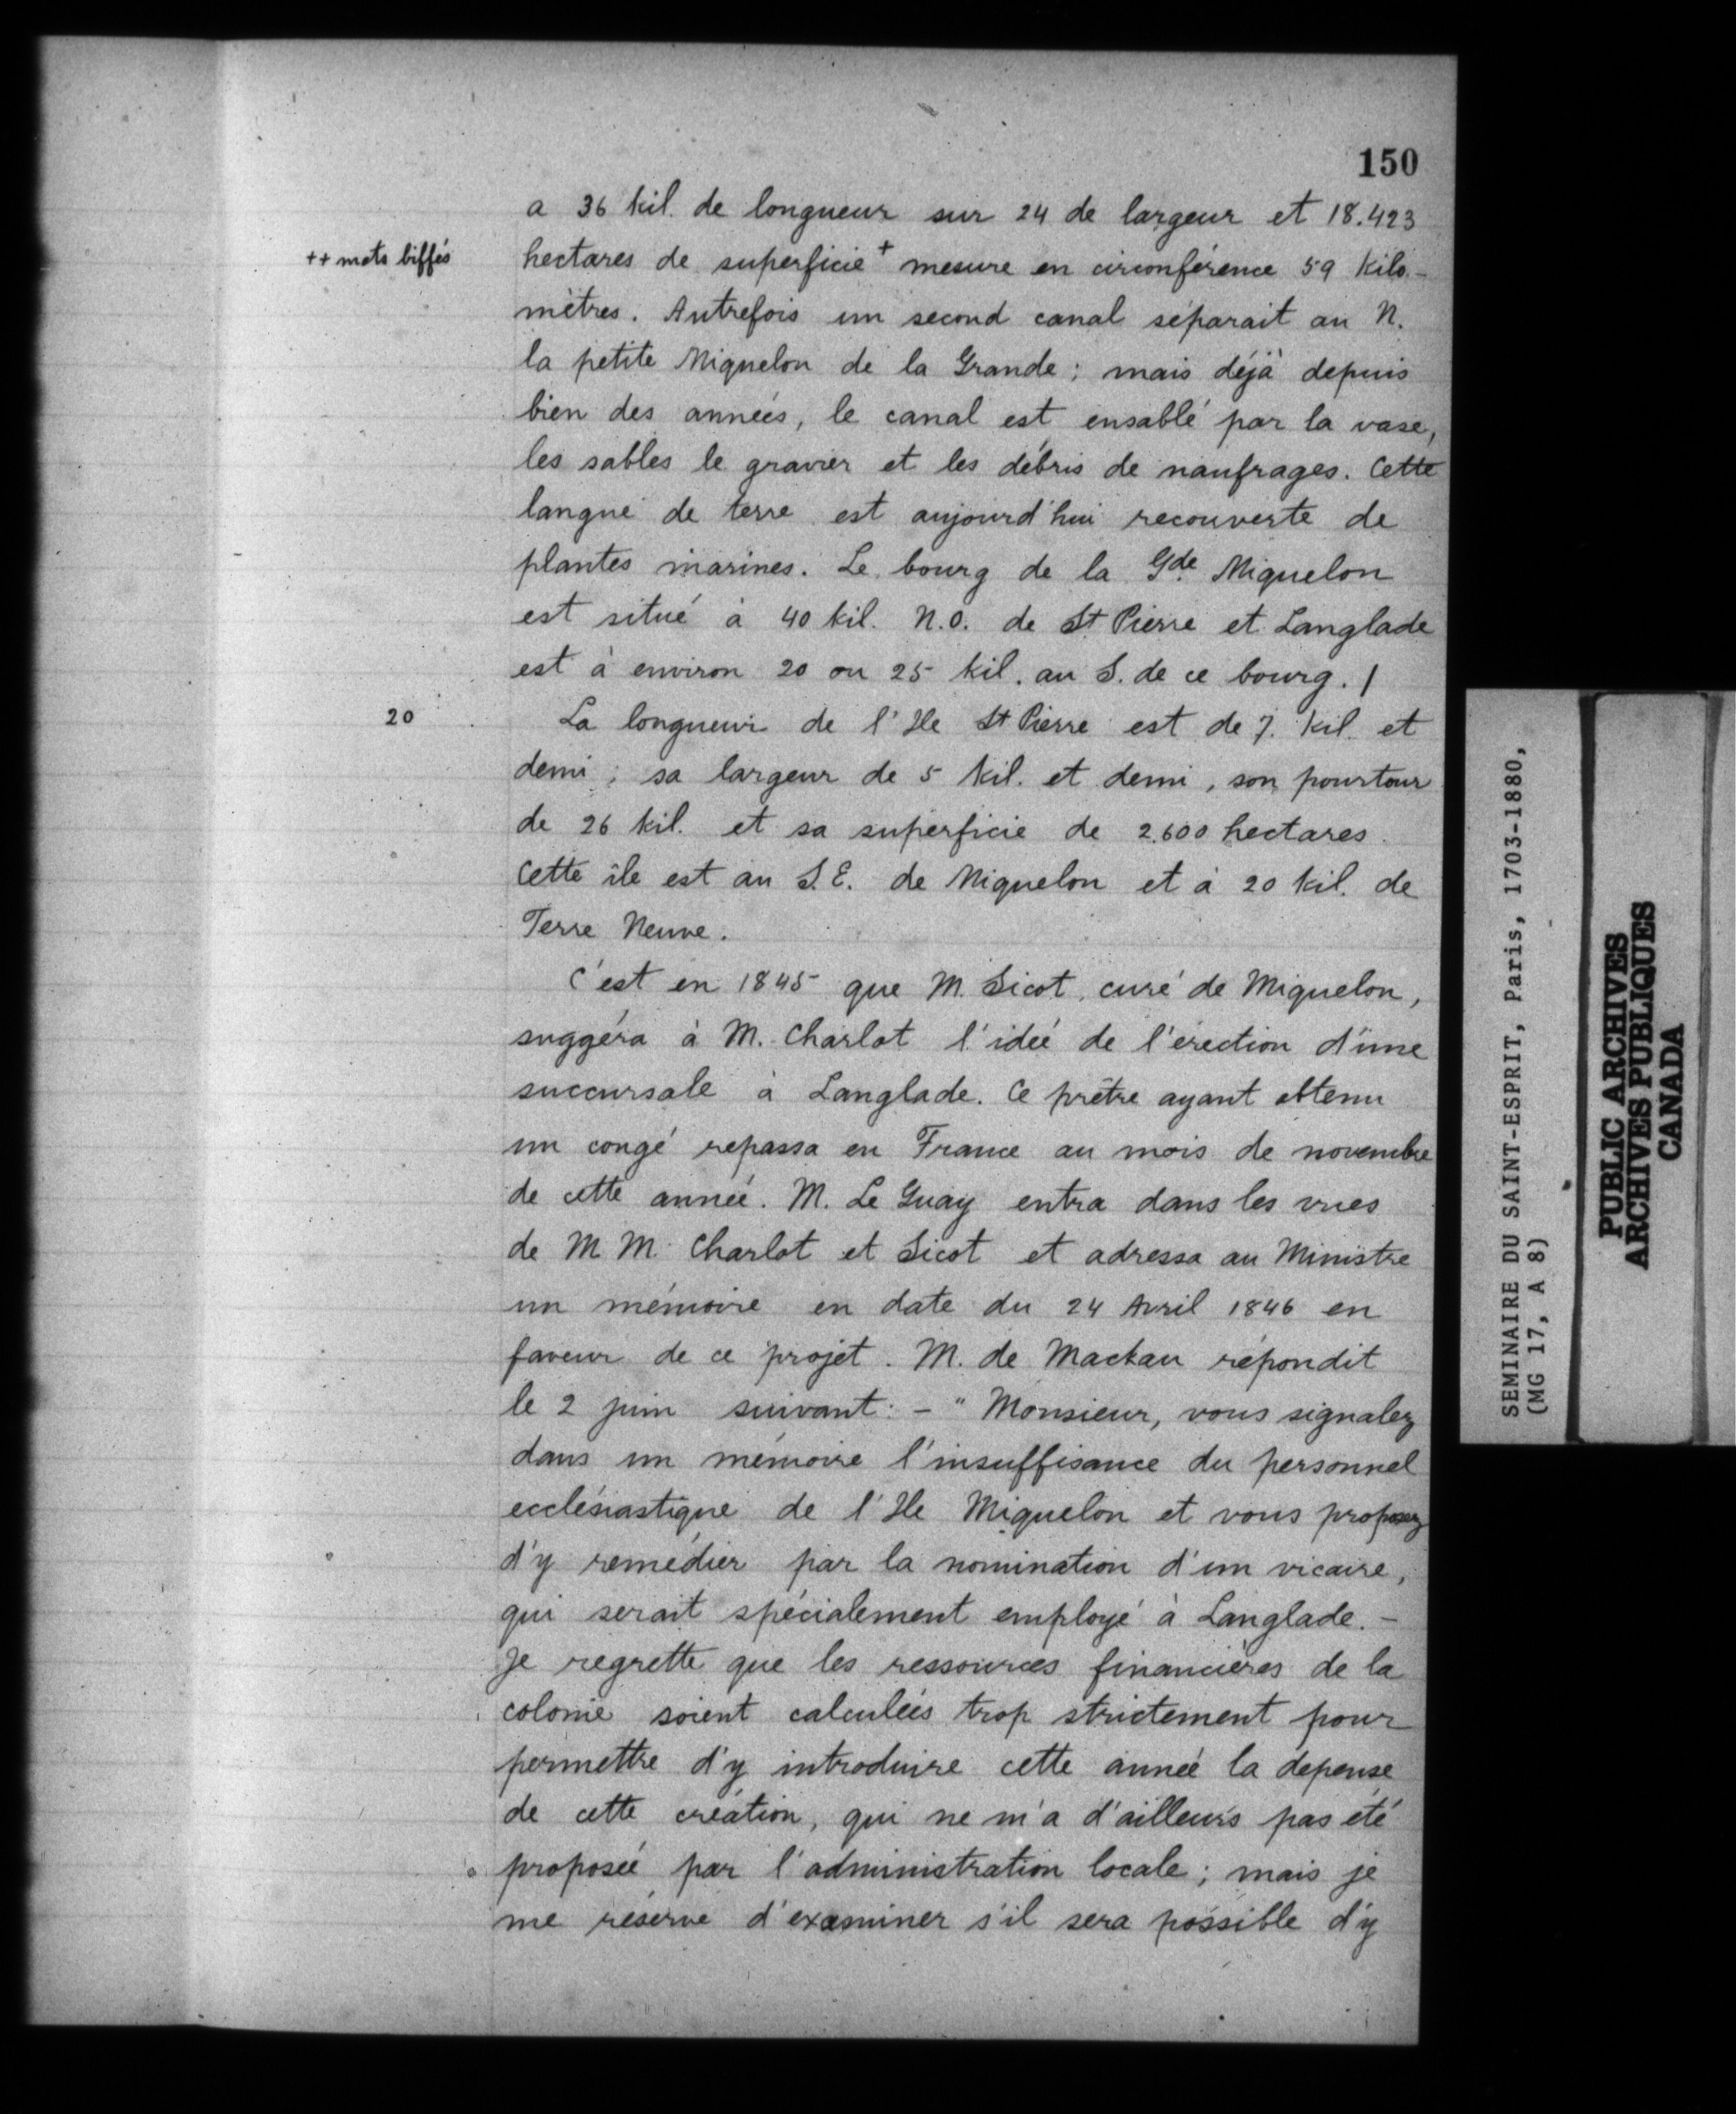 150
a 36 kil. de longueur sur 24 de largeur et 18.423
++ mots biffés
hectares de superficie + mesure en circonférence 59 kilo-
mètres. Autrefois un second canal séparait au N.
la petite Miquelon de la Grande ; mais déjà depuis
bien des années, le canal est ensablé par la vase,
les sables le gravier et les débris de naufrages. Cette
langue de terre est aujourd'hui recouverte de
plantes marines. Le bourg de la Gde Miquelon
est situé à 40 kil. N.O. de St Pierre et Langlade
est à environ 20 ou 25 kil. au S. de ce bourg. /
20
La longueur de l'Ile St Pierre est de 7. kil. et
demi ; sa largeur de 5 kil. et demi, son pourtour
de 26 kil. et sa superficie de 2.600 hectares.
Cette île est au S.E. de Miquelon et à 20 kil. de
Terre Neuve.
C'est en 1845 que M. Sicot, curé de Miquelon,
suggéra à M. Charlot l'idée de l'érection d'une
succursale à Langlade. Ce prêtre ayant obtenu
un congé repassa en France au mois de novembre
de cette année. M. Le Guay entra dans les vues
de M M Charlot et Sicot et adressa au Ministre
un mémoire en date du 24 Avril 1846 en
faveur de ce projet. M. de Mackau répondit
le 2 juin suivant : - " Monsieur, vous signalez
dans un mémoire l'insuffisance du personnel
ecclésiastique de l'Ile Miquelon et vous proposez
d'y remédier par la nomination d'un vicaire,
qui serait spécialement employé à Langlade. -
Je regrette que les ressources financières de la
colonie soient calculées trop strictement pour
permettre d'y introduire cette année la dépense
de cette création, qui ne m'a d'ailleurs pas été
proposée par l'administration locale ; mais je
me réserve d'examiner s'il sera possible d'y
SEMINAIRE DU SAINT-ESPRIT, Paris, 1703-1880,
(MG 17, A 8)
PUBLIC ARCHIVES
ARCHIVES PUBLIQUES
CANADA